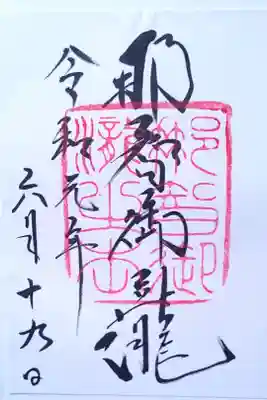 那智御瀧
令和元年
六月十九日